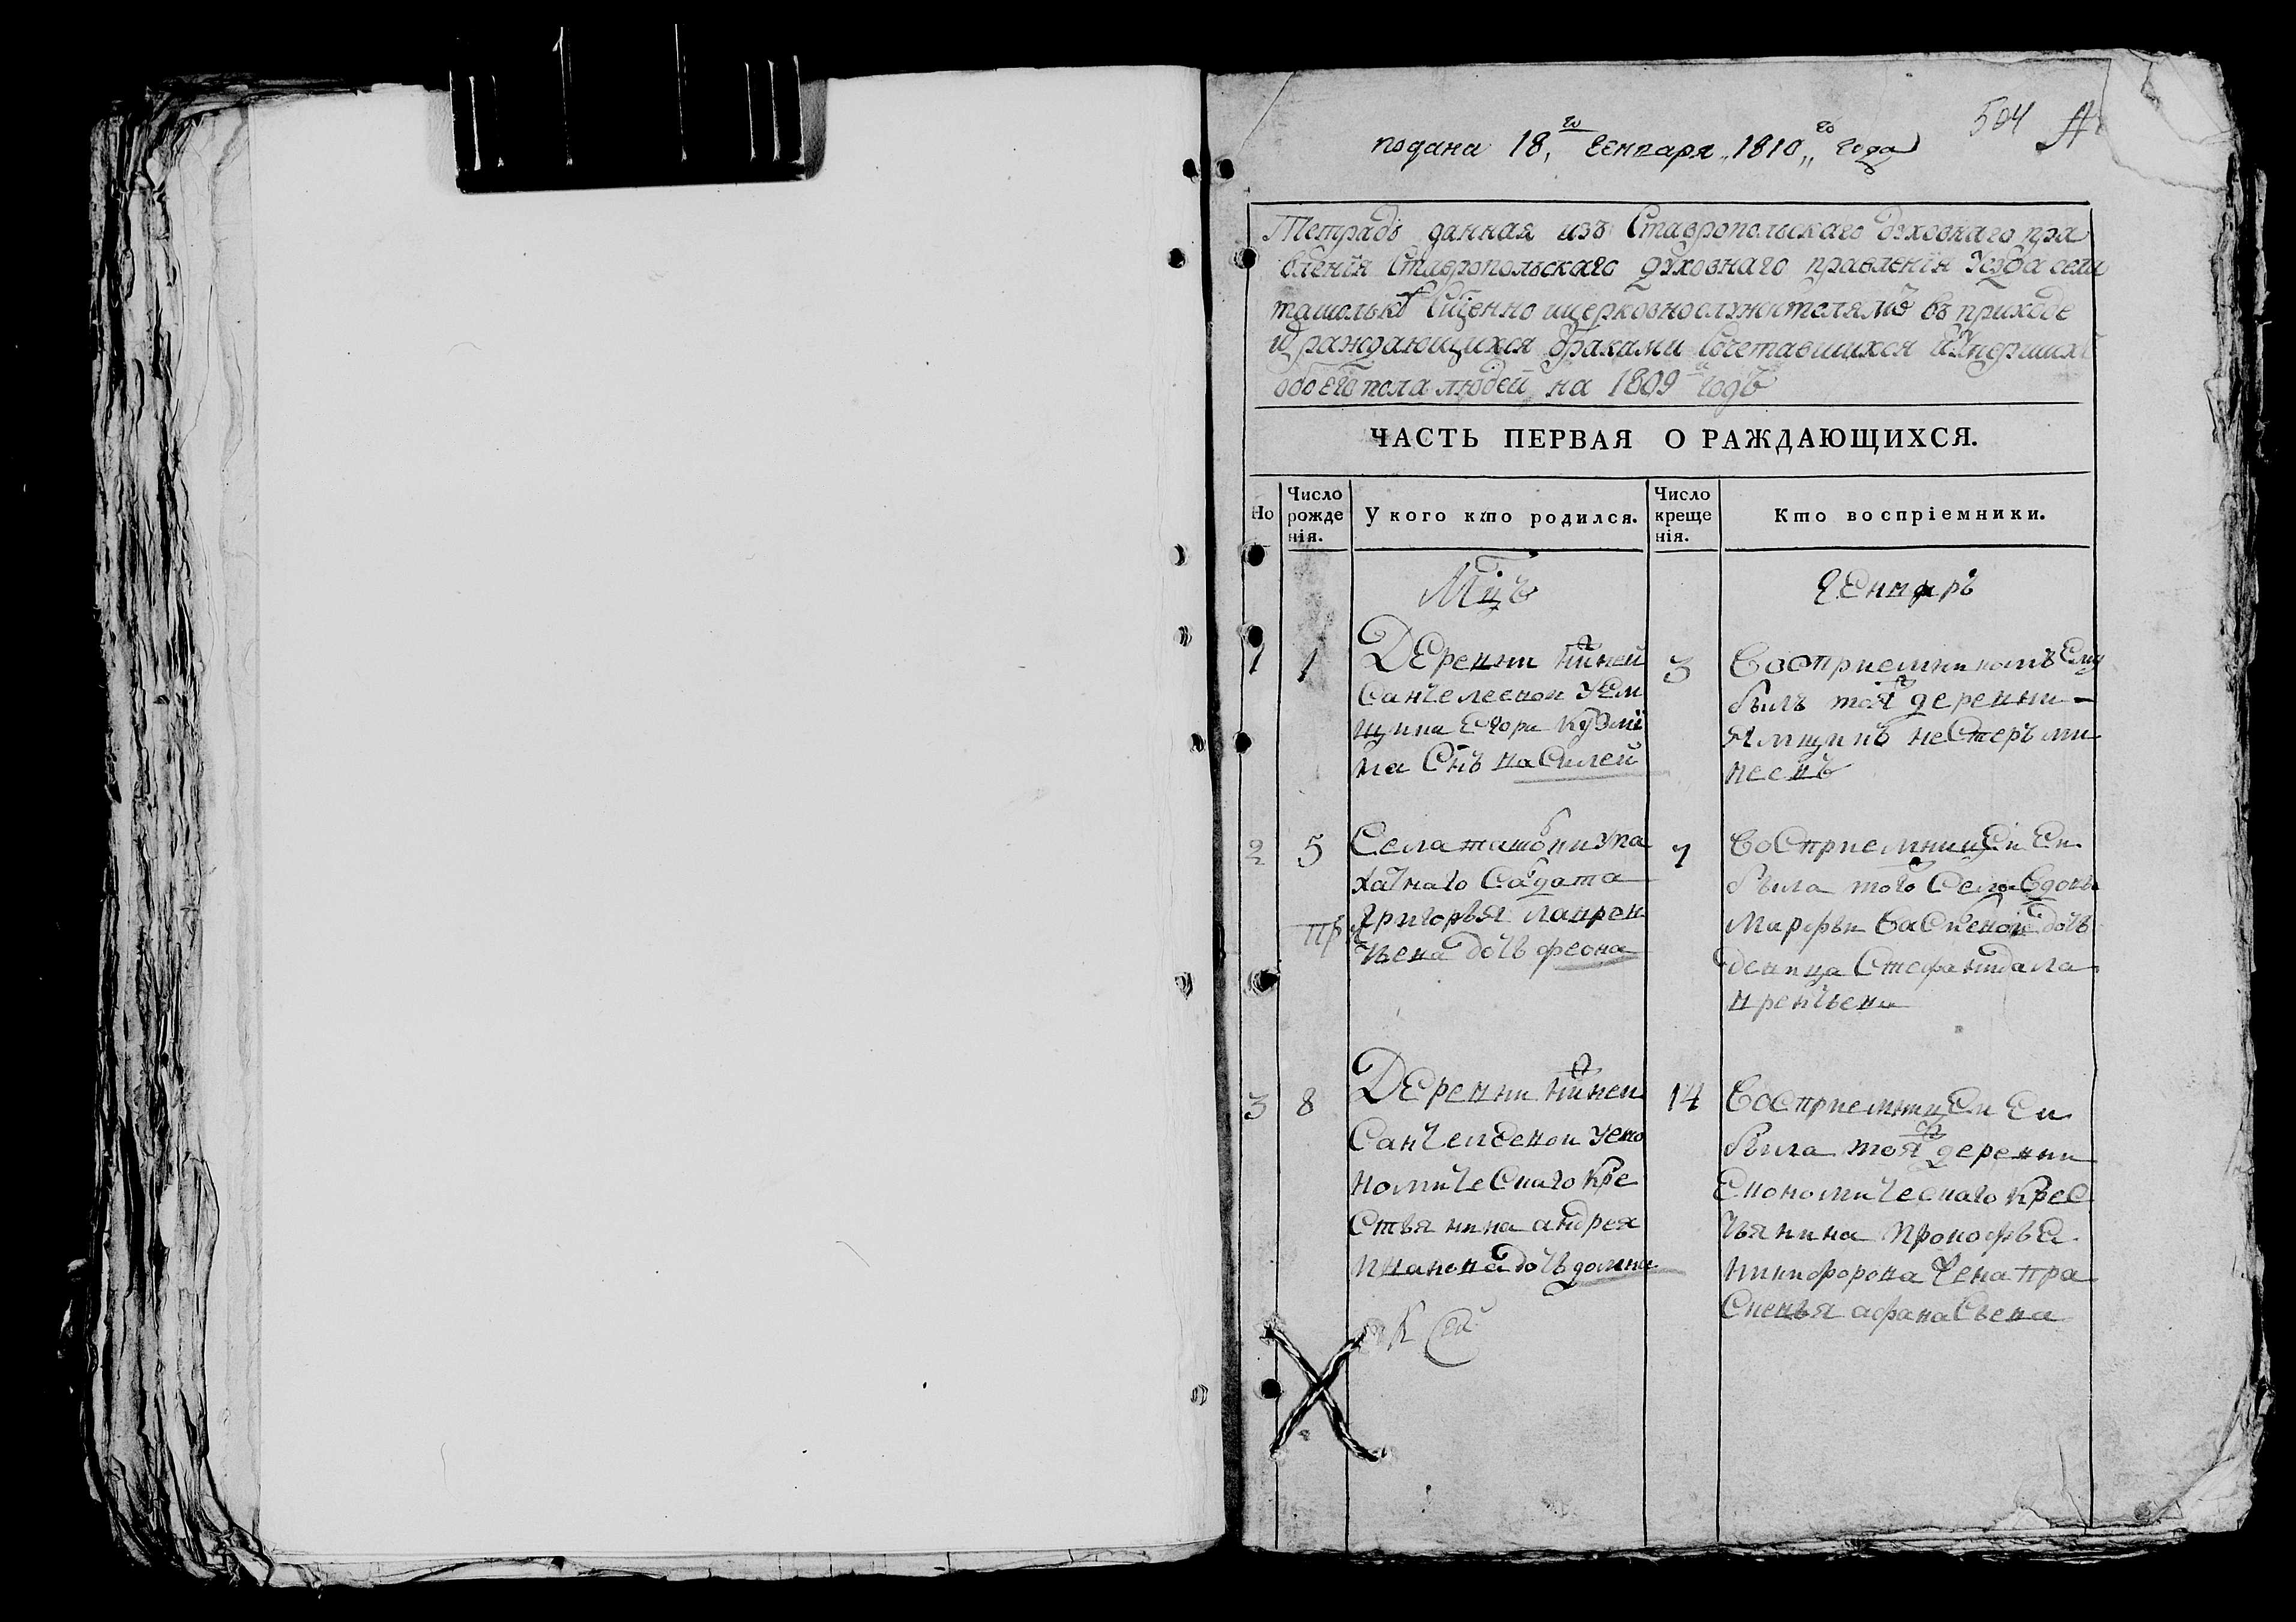 504
подана 18,го Генваря „1810„го года
Тетрадь данная изъ Ставропольскаго духовнаго пра
вленія Ставропольскаго духовнаго правленія уезда села
священно ицерковнослужителямъ въ приходе
раждающихся браками сочетавшихся
обоего пола людей на 1809й годъ
ЧАСТЬ ПЕРВАЯ О РАЖДАЮЩИХСЯ.
Но
Число рожденія.
У кого кто родился.
Число крещенія.
Кто воспріемники.
Мцъ
Генварь
1
1
Деревни
Санчелеевой у ям
щика Егора Кузми
на Снъ василей
3
Восприемникомъ Ему
былъ тоя деревни
Ямщикъ нестеръ ми
неевъ
2
5
Села ташолки упа
хатнаго Салдата
Григорья лаврен
тьева дочь феона
7
восприемницеи Еи
была того Села вдовы
Марфы васильевой дочь
девица Стефанида ла
врентьева
3
8
Деревни
Санчелеевои уеко
номическаго кре
стьянина андрея
иванова дочь домна
14
Восприемницеи Еи
была тоя деревни
Економическаго крес
тьянина прокофья
никифорова жена пра
сковья афанасьева